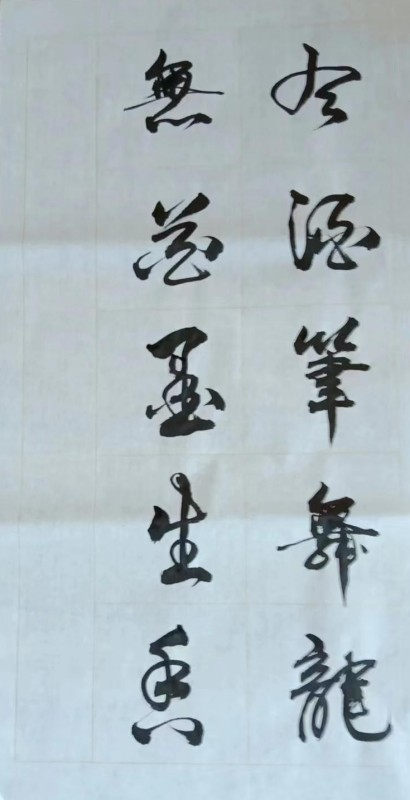 有酒筆舞龍
無花墨生香